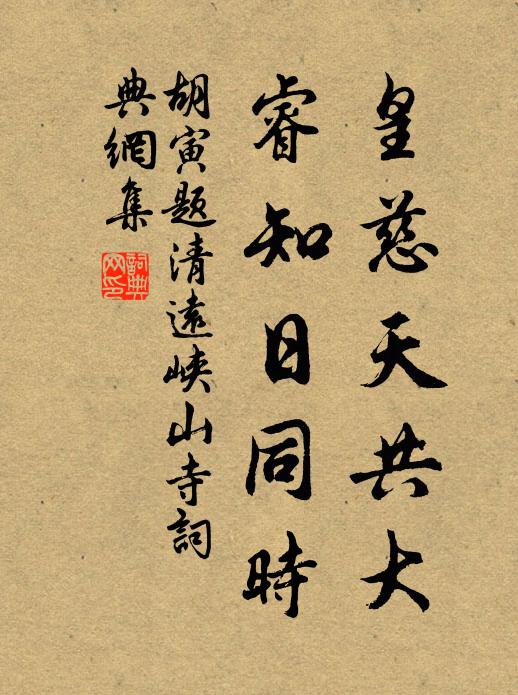 皇慈天共大
睿知日同時
胡寅題清遠峽山寺詞
典網集
詞典
网印